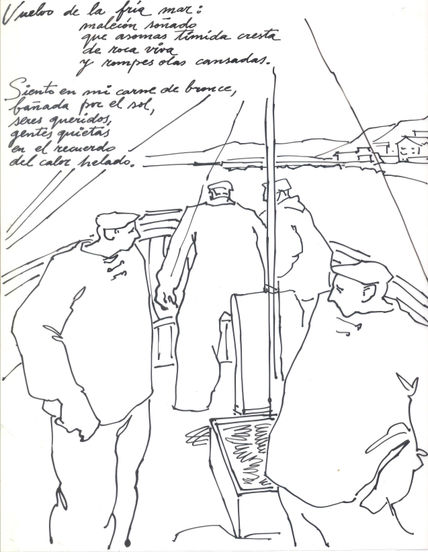 Vuelvo de la fría mar:
malecón soñado
que asomas tímida cresta
de roca viva
y rompes olas cansadas.
Siento en mi carne de bronce,
bañada por el sol,
seres queridos,
gentes quietas
en el recuerdo
del calor helado.